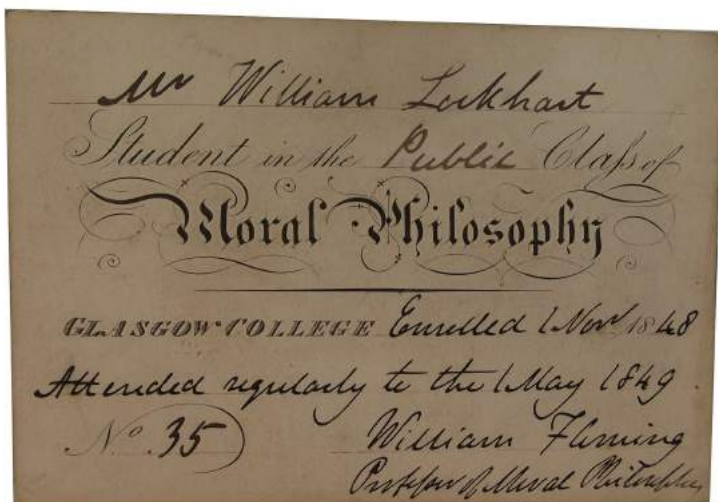 Mr William Lockhart
Student in the Public Claſs of
Moral Philosophy
GLASGOW COLLEGE Enrolled 1 Novr 1848
Attended regularly to the 1 May 1849
No. 35
William Fleming
Profeſsor of Moral Philosophy